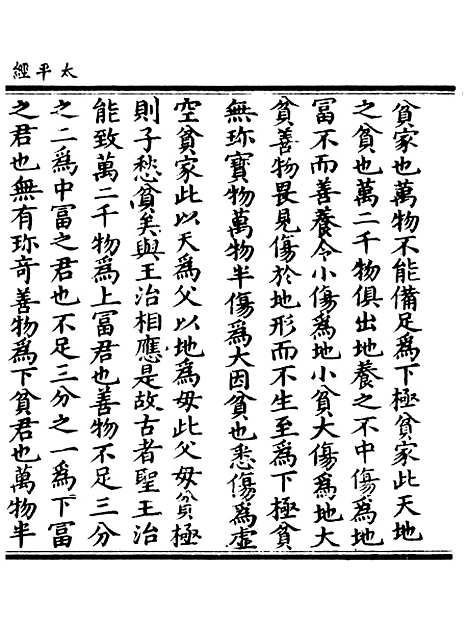 太平經
貧家也萬物不能備足爲下極貧家此天地
之貧也萬二千物俱出地養之不中傷爲地
冨不而善養令小傷爲地小貧大傷爲地大
貧善物畏見傷於地形而不生至爲下極貧
無珎寶物萬物半傷爲大因貧也悉傷爲虚
空貧家此以天爲父以地爲母此父母貧極
則子愁貧矣與王治相應是故古者聖王治
能致萬二千物爲上冨君也善物不足三分
之二爲中冨之君也不足三分之一爲下冨
之君也無有珎竒善物爲下貧君也萬物半